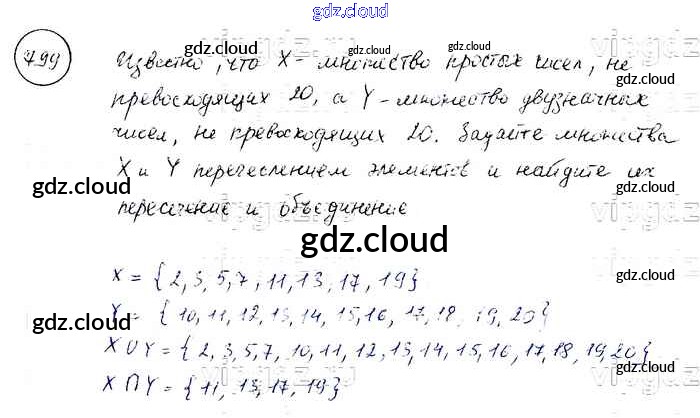 gdz.cloud
799
Известно, что X - множество простых чисел, не
превосходящих 20, а Y - множество двузначных
чисел, не превосходящих 20. Задайте множества
X и Y перечеслением элементов и найдите их
пересечение и объединение
X = {2, 3, 5, 7, 11, 13, 17, 19}
Y = {10, 11, 12, 13, 14, 15, 16, 17, 18, 19, 20}
X U Y = {2, 3, 5, 7, 10, 11, 12, 13, 14, 15, 16, 17, 18, 19, 20}
X ∩ Y = {11, 13, 17, 19}
gdz.cloud
gdz.cloud
gdz.cloud
gdz.cloud
gdz.cloud
gdz.cloud
gdz.cloud
gdz.cloud
gdz.cloud